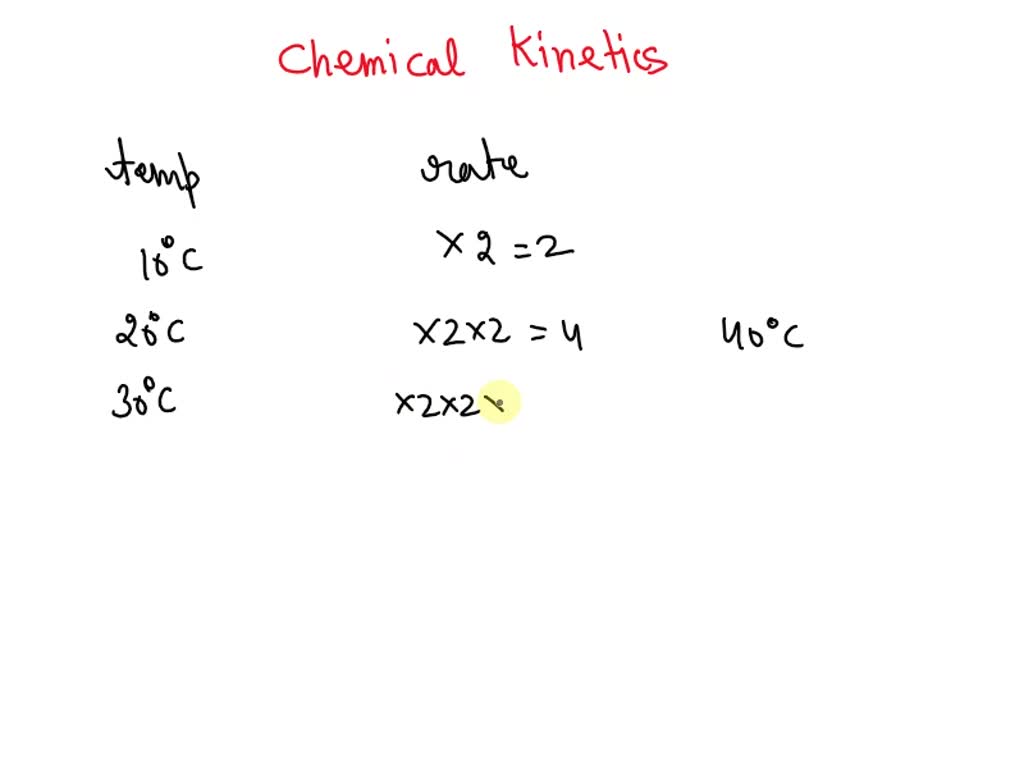 Chemical Kinetics
temp rate
10°C ×2 = 2
20°C ×2×2 = 4 40°C
30°C ×2×2×